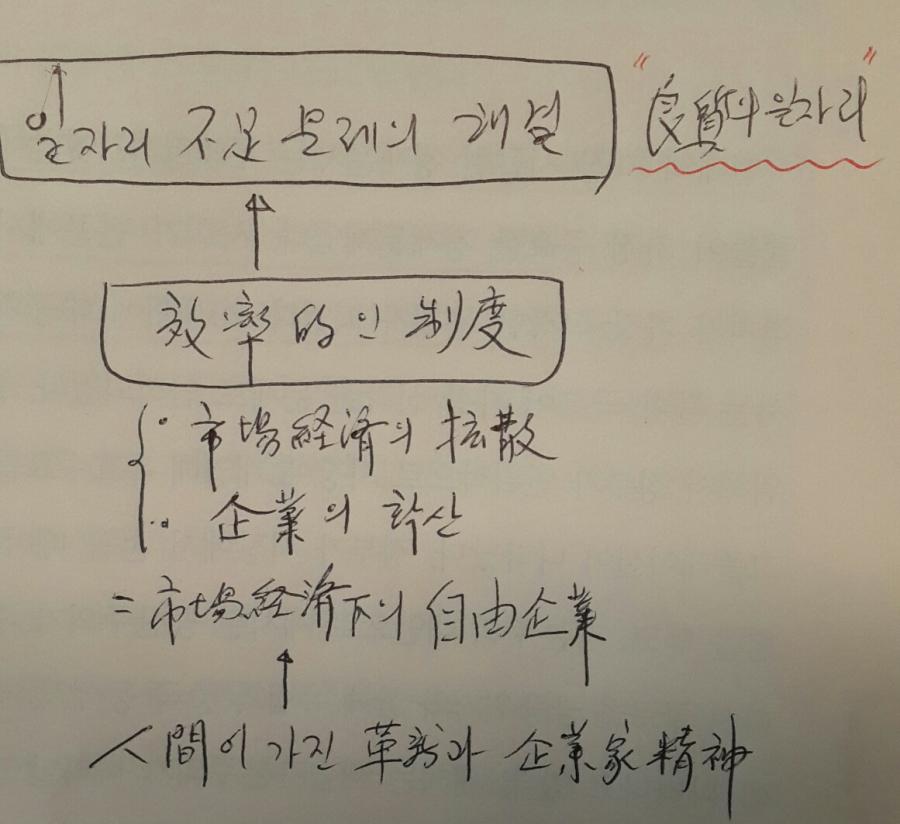 일자리 不足 문제의 해결
"良質의 일자리"
效率的인 制度
· 市場経済의 拡散
· 企業의 확산
= 市場経済下의 自由企業
人間이 가진 革新과 企業家精神